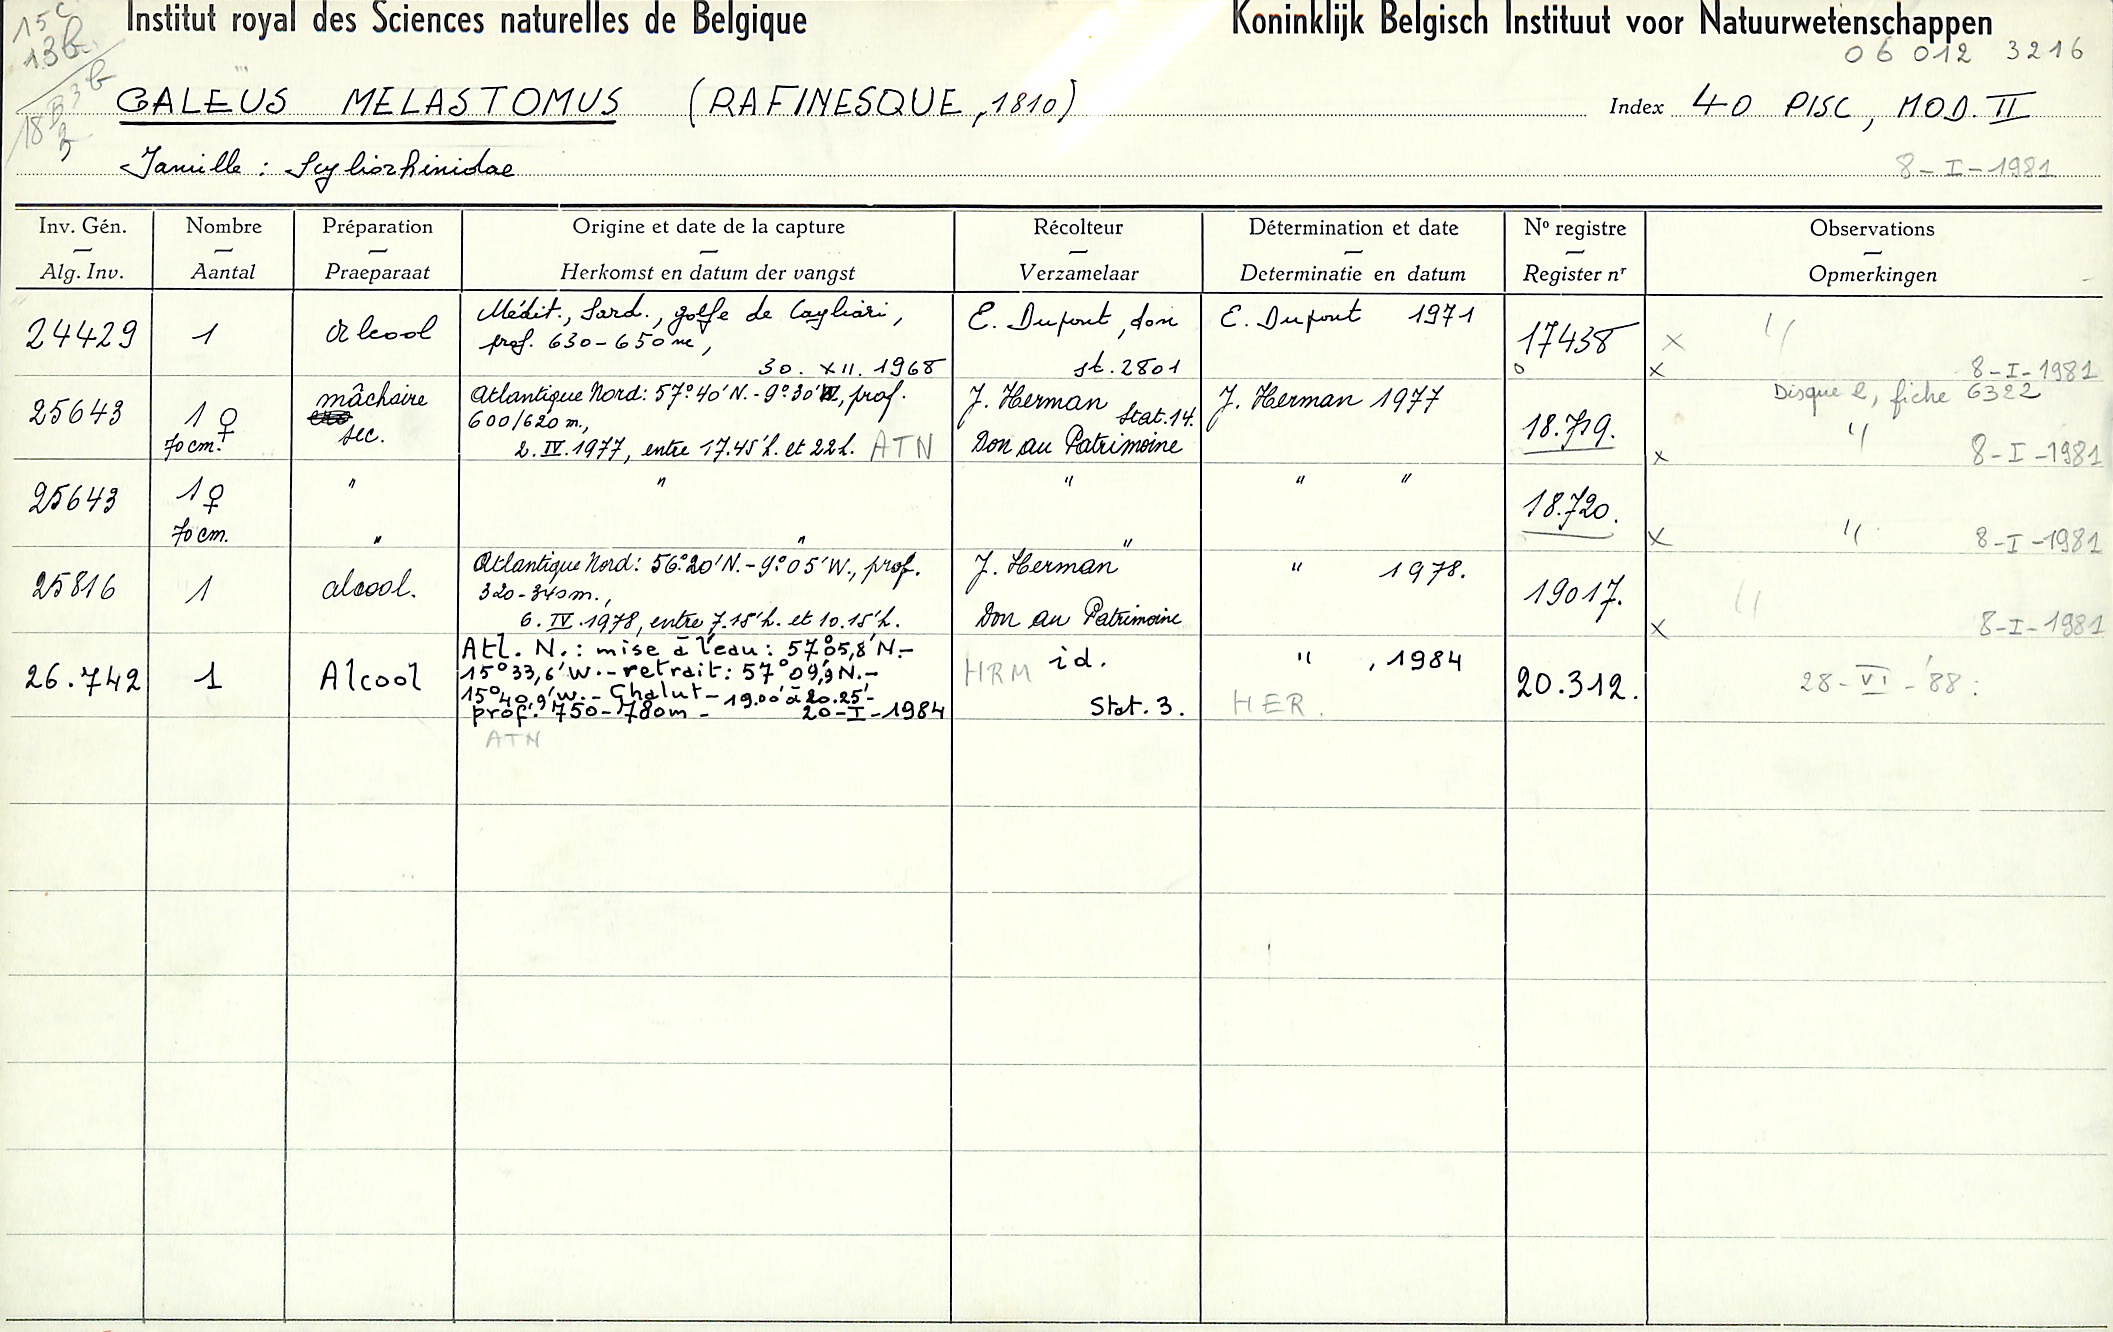 15c
13b
Institut royal des Sciences naturelles de Belgique Koninklijk Belgisch Instituut voor Natuurwetenschappen
06 012 3216
GALEUS MELASTOMUS (RAFINESQUE, 1810) Index 40 PISC, MOD. II
Famille : Scyliorhinidae 8-I-1981
Inv. Gén. Nombre Préparation Origine et date de la capture Récolteur Détermination et date No registre Observations
Alg. Inv. Aantal Praeparaat Herkomst en datum der vangst Verzamelaar Determinatie en datum Register nr Opmerkingen
24429 1 alcool Médit., Sard., golfe de Cagliari, E. Dupont, don E. Dupont 1971 17438 x "
prof. 630-650 m,
30. XII. 1968 st. 2801 o x 8-I-1981
25643 1 ♀ mâchoire Atlantique Nord: 57°40'N.-9°30'W, prof. J. Herman J. Herman 1977 18.719. Disque 2, fiche 6322
600/620 m., Stat. 14.
70 cm. sec. 2. IV. 1977, entre 17.45'h. et 22h. ATN Don au Patrimoine x " 8-I-1981
25643 1 ♀ " " " " " 18.720.
70 cm. " " " x " 8-I-1981
25816 1 alcool. Atlantique Nord: 56°20'N.-9°05'W., prof. J. Herman " 1978. 19017. "
320-340m.,
6. IV. 1978, entre 7.15'h. et 10.15'h. Don au Patrimoine x 8-I-1981
26.742 1 Alcool Atl. N.: mise à l'eau: 57°05,8'N.- id. " , 1984 20.312. 28-VI-'88:
15°33,6'W.-retrait: 57°09,9'N.- HRM
15°40,9'W.- Chalut- 19.00' à 20.25'-
prof. 750-780m - 20-I-1984 Stat. 3. HER.
ATN